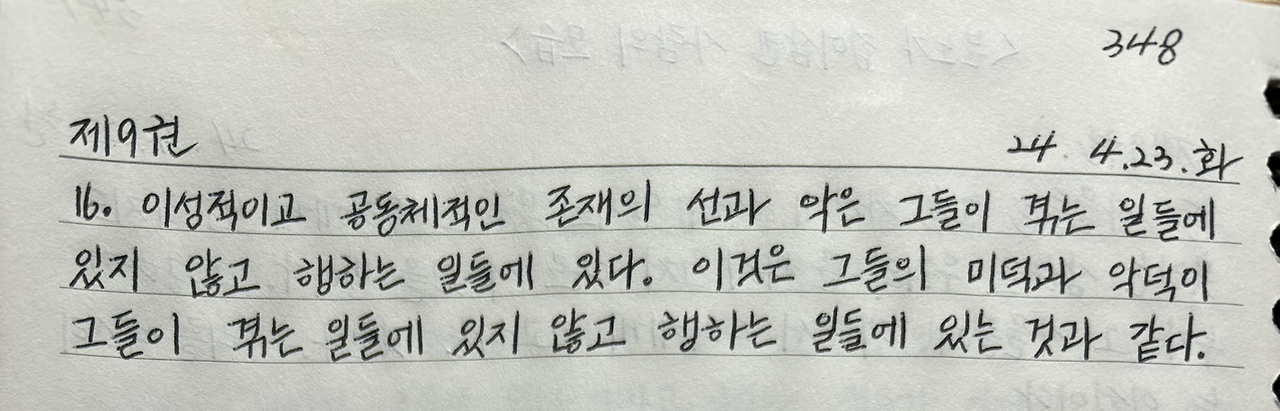 348
제9권
24. 4.23.화
16. 이성적이고 공동체적인 존재의 선과 악은 그들이 겪는 일들에
있지 않고 행하는 일들에 있다. 이것은 그들의 미덕과 악덕이
그들이 겪는 일들에 있지 않고 행하는 일들에 있는 것과 같다.